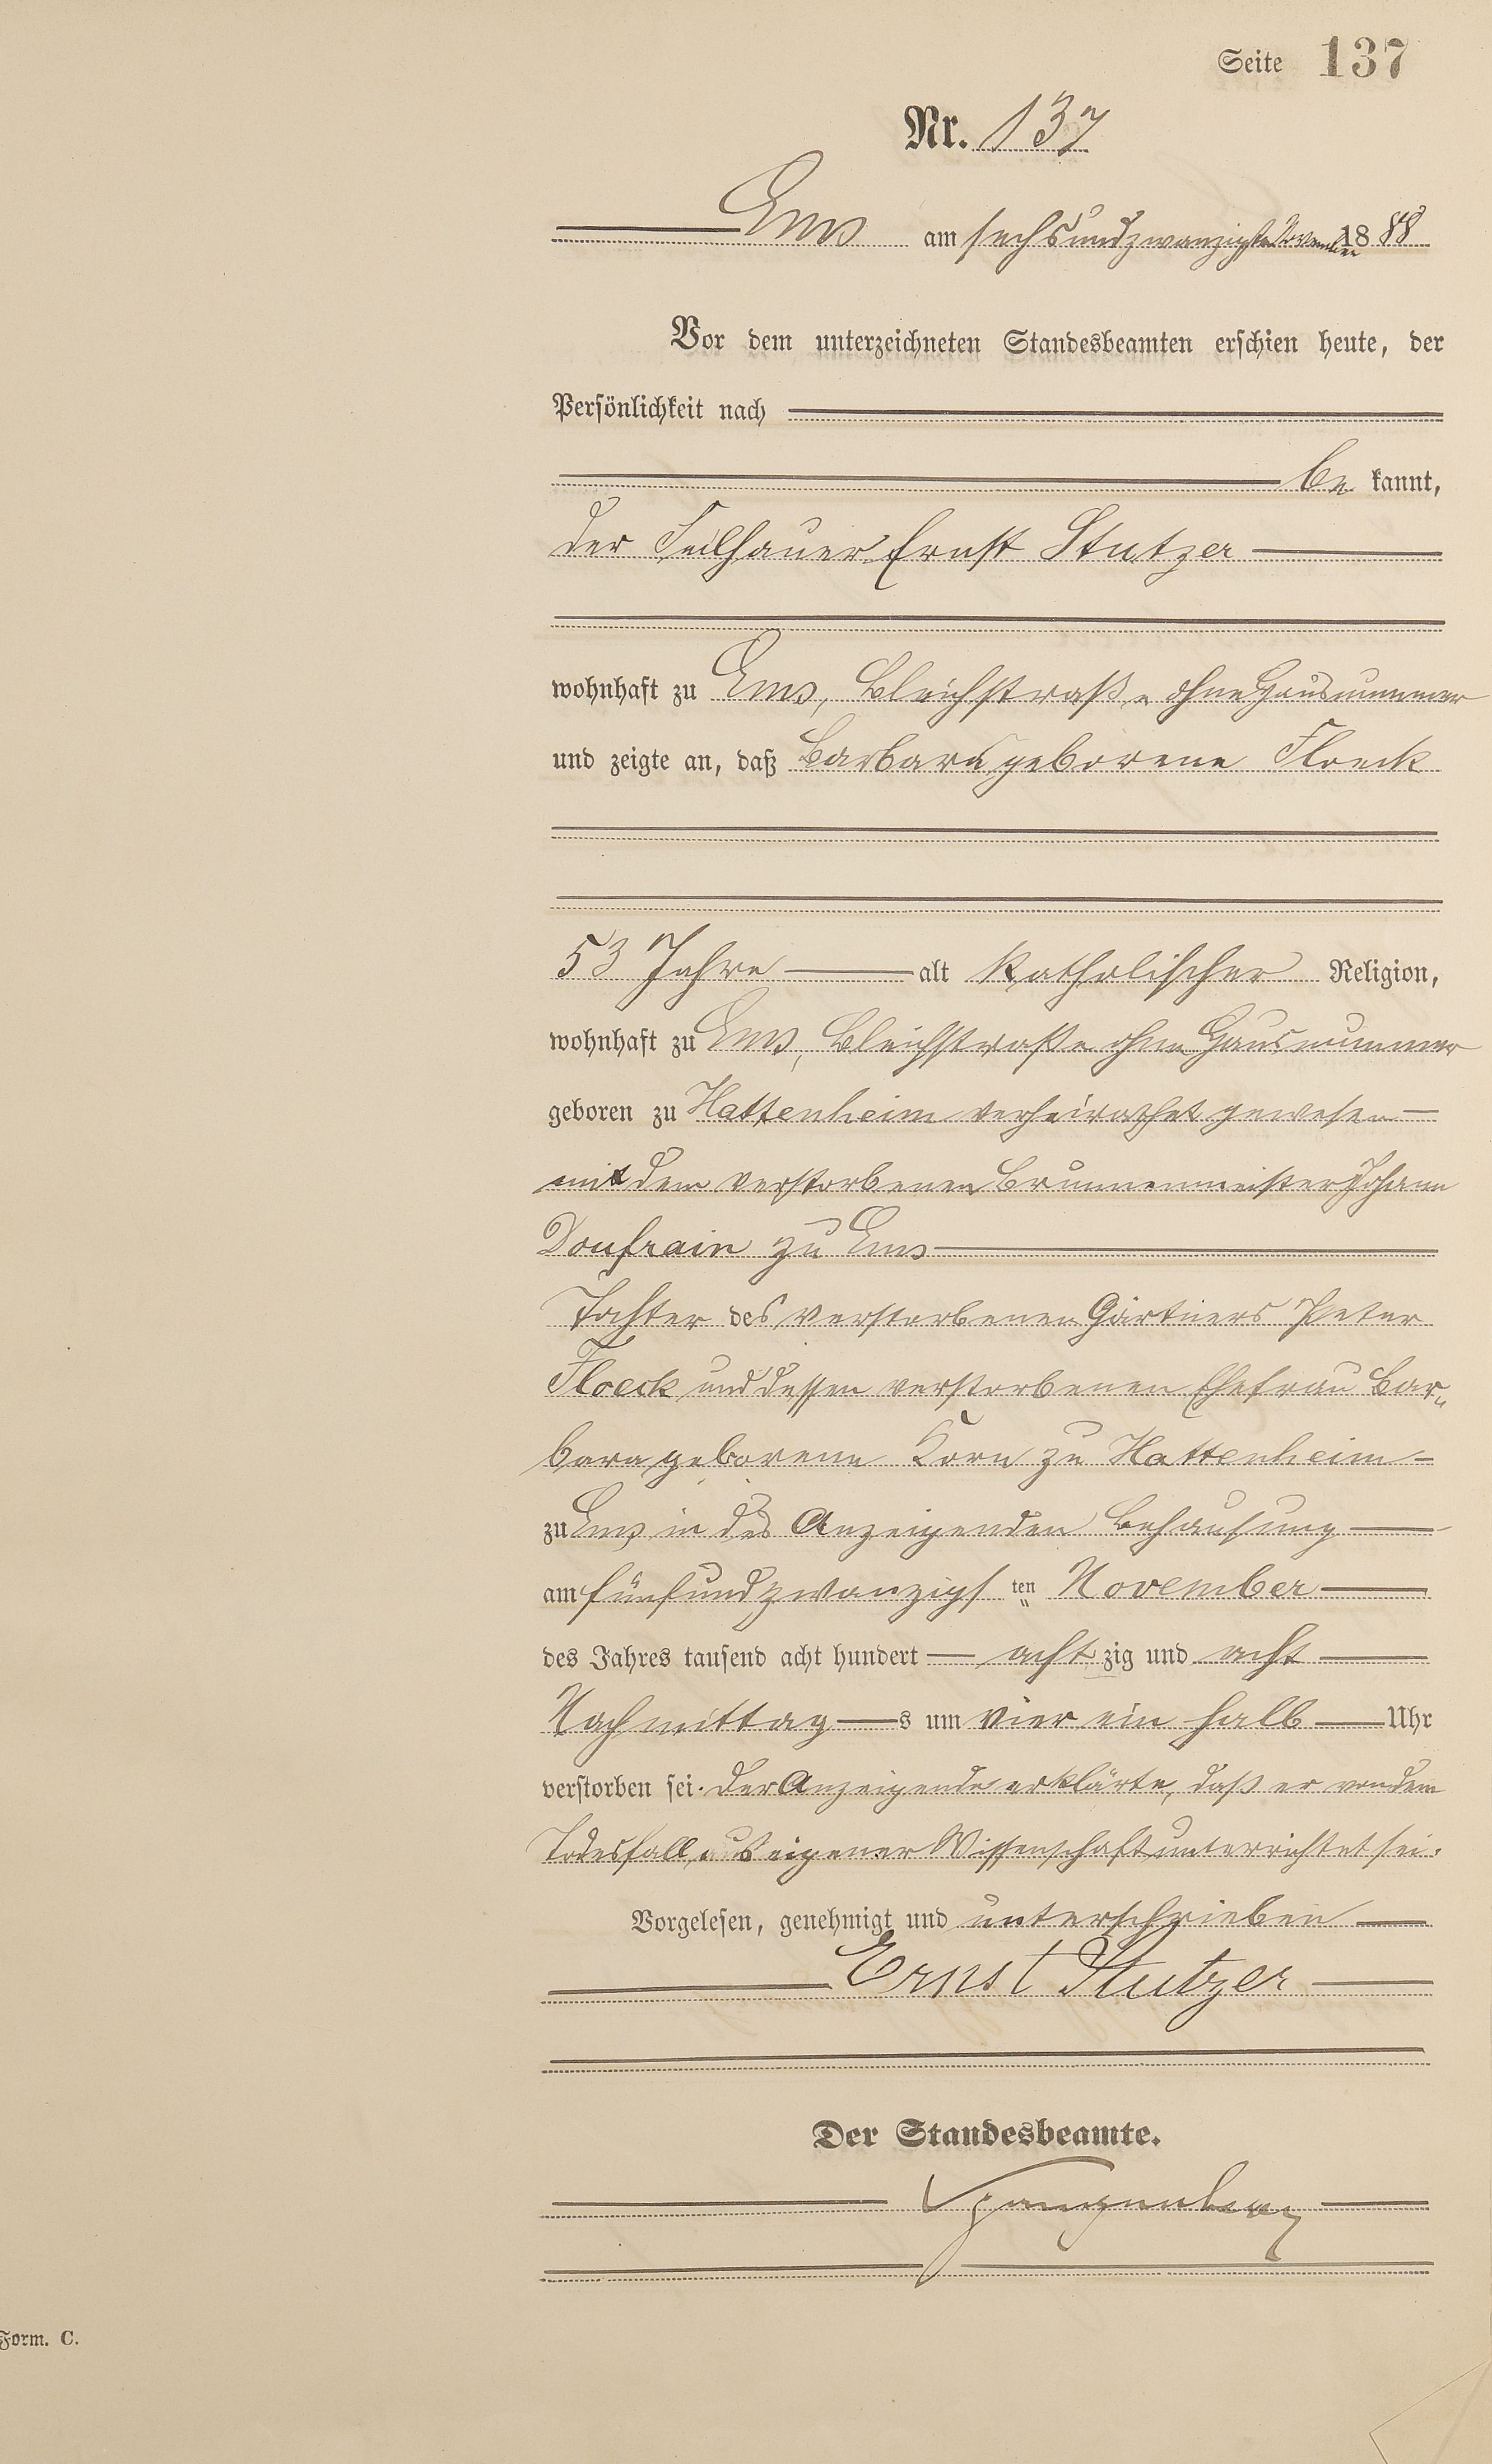 Seite 137
Nr. 137
Ems am sechsundzwanzigsten November 1888
Vor dem unterzeichneten Standesbeamten erschien heute, der
Persönlichkeit nach
be kannt,
der Feilhauer Ernst Stutzer
wohnhaft zu Ems, Bleichstraße ohne Hausnummer
und zeigte an, daß Barbara geborene Floeck
53 Jahre alt katholischer Religion,
wohnhaft zu Ems, Bleichstraße ohne Hausnummer
geboren zu Hattenheim verheirathet gewesen
mit dem verstorbenen Brunnenmeister Johann
Doufrain zu Ems
Tochter des verstorbenen Gärtners Peter
Floeck und dessen verstorbenen Ehefrau Bar„
bara geborene Korn zu Hattenheim
zu Ems in des Anzeigenden Behausung
am fünfundzwanzigs ten November
des Jahres tausend acht hundert acht zig und acht
Nachmittag s um vier ein halb Uhr
verstorben sei. Der Anzeigende erklärte, daß er von dem
Todesfall aus eigener Wissenschaft unterrichtet sei.
Vorgelesen, genehmigt und unterschrieben
Ernst Stutzer
Der Standesbeamte.
Form. C.